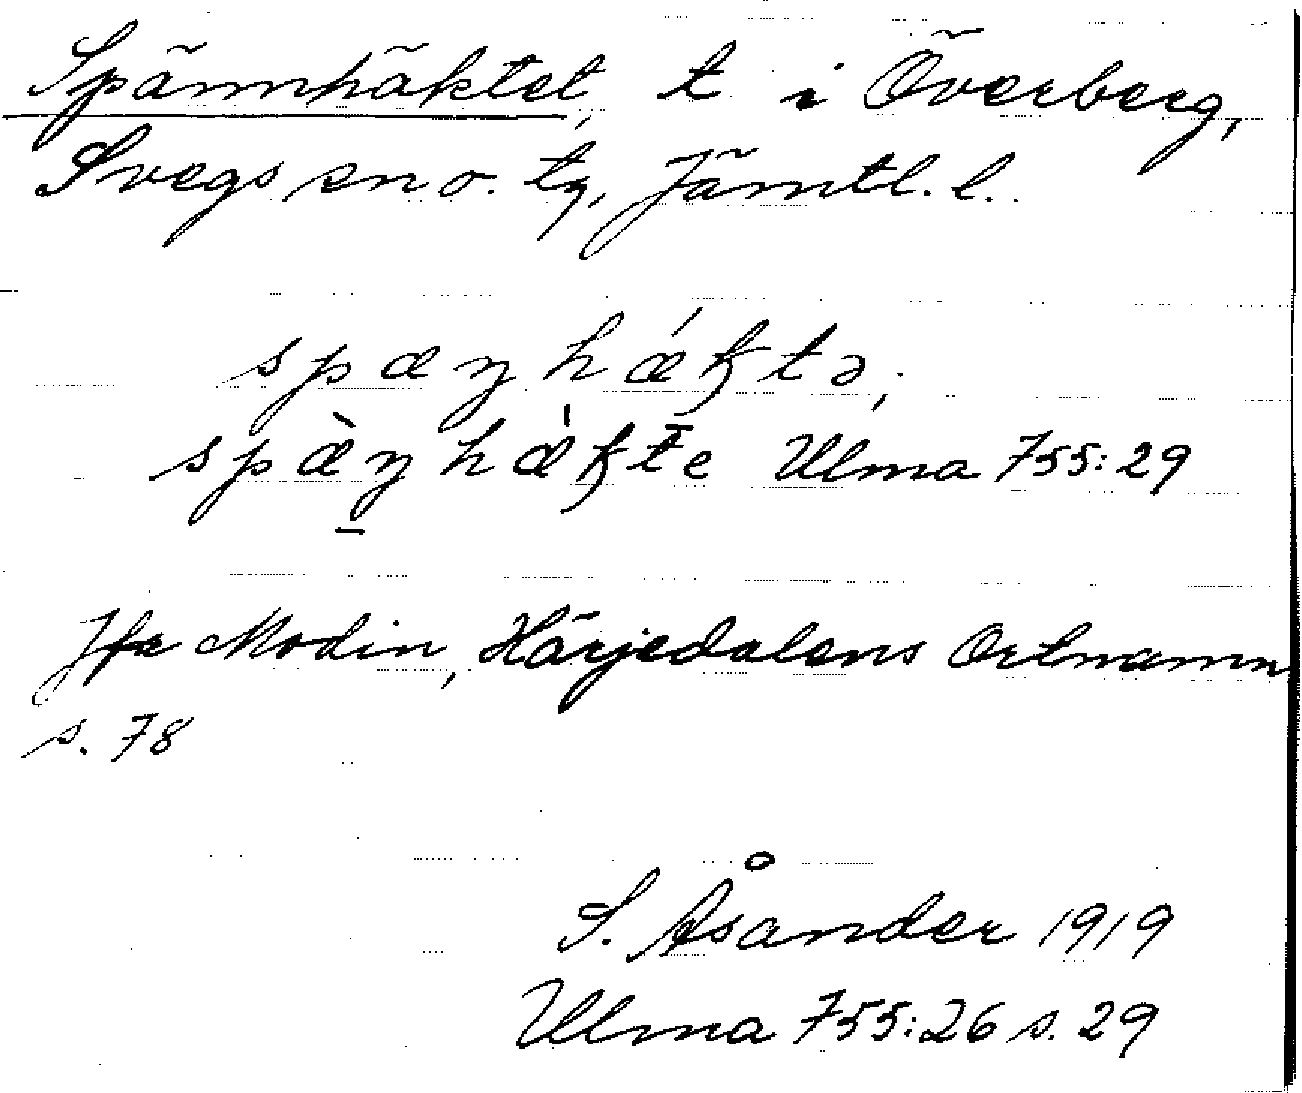 Spännhäktet, t i Överberg,
Svegs sn o. tg, Jämtl. l.
spæŋhǽꞣtə,
spæ̀ŋhæ̀ꞣte Ulma 755:29
Jfr Modin, Härjedalens Ortnamn
s. 78
S. Åsander 1919
Ulma 755:26 s. 29